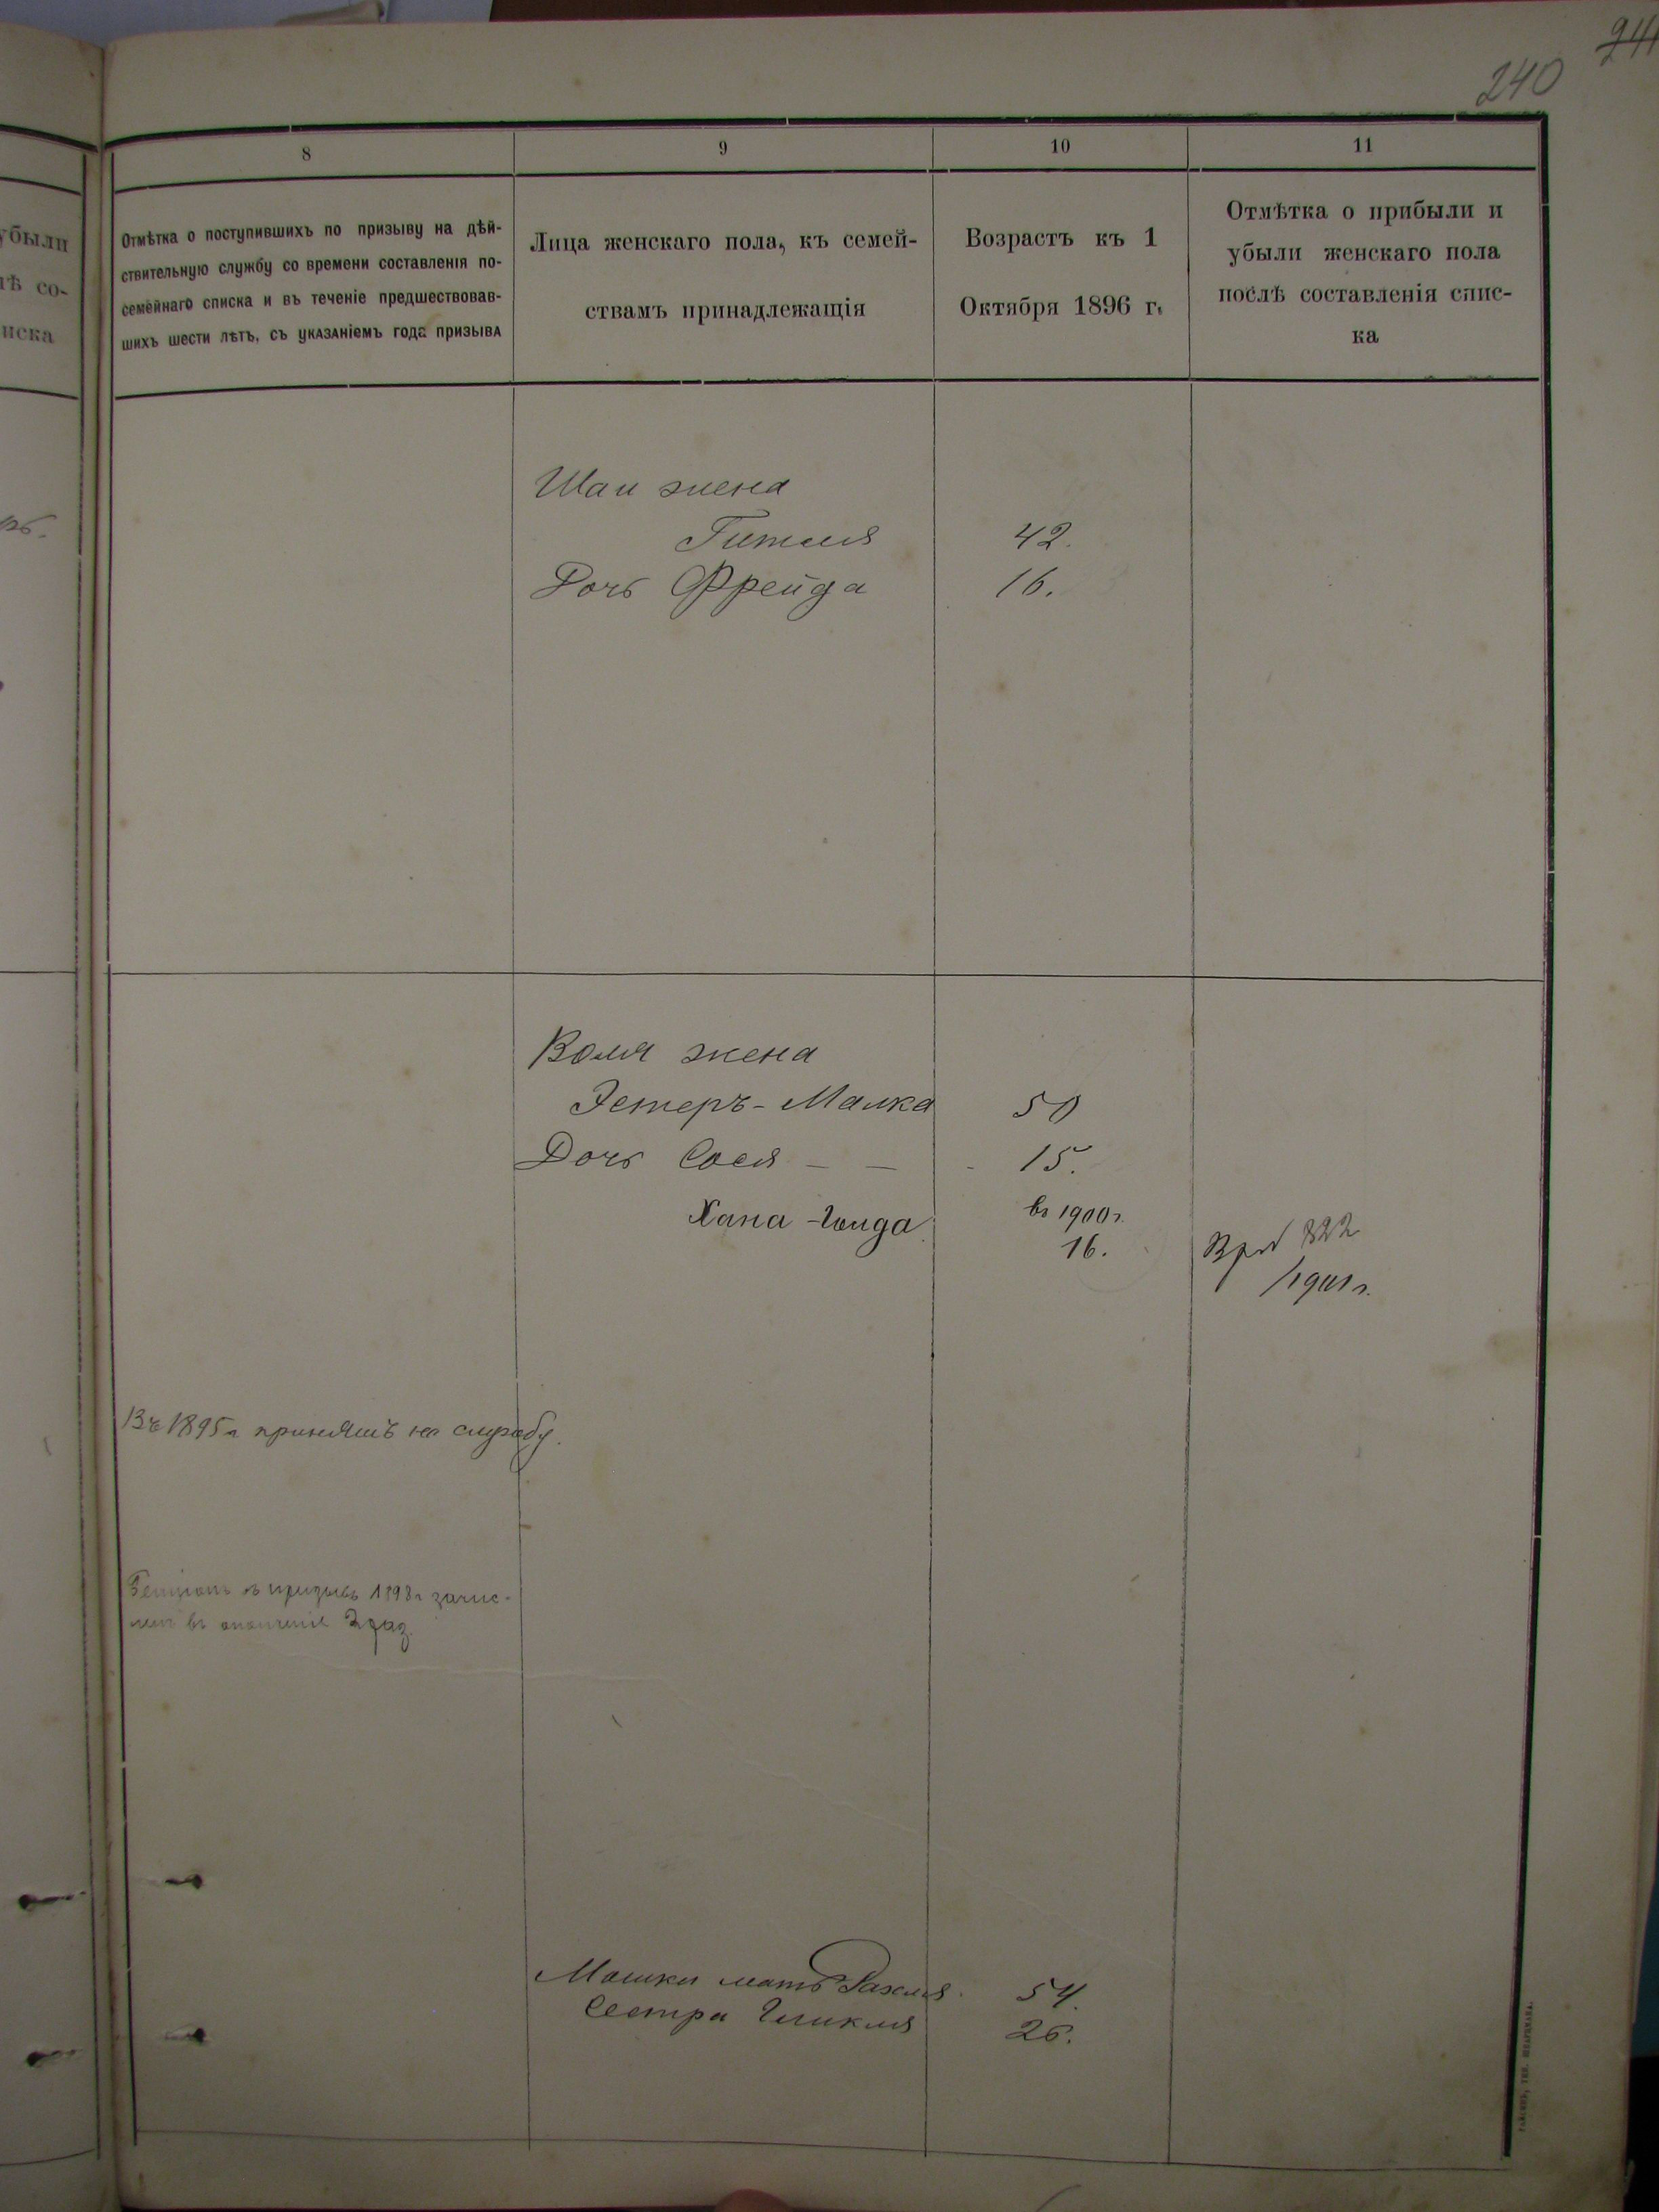 241
240
8
9
10
11
убыли
лѣ со-
иска
Отмѣтка о поступившихъ по призыву на дѣй-
ствительную службу со времени составленія по-
семейнаго списка и въ теченіе предшествовав-
шихъ шести лѣтъ, съ указаніемъ года призыва
Лица женскаго пола, къ семей-
ствамъ принадлежащія
Возрастъ къ 1
Октября 1896 г.
Отмѣтка о прибыли и
убыли женскаго пола
послѣ составленія спис-
ка
Шаи жена
Гитля 42.
Дочь Фрейда 16.
жена
Эстеръ-Малка 50
Дочь Сося — — - 15.
въ 1900 г.
Хана-Голда 16.
322
/1901 г.
Въ 1895 г принятъ на службу.
въ призывъ 1898 г зачис-
лен въ ополченіе 2 раз.
Мошки мать Рахля. 54.
Сестра Гликля 26.